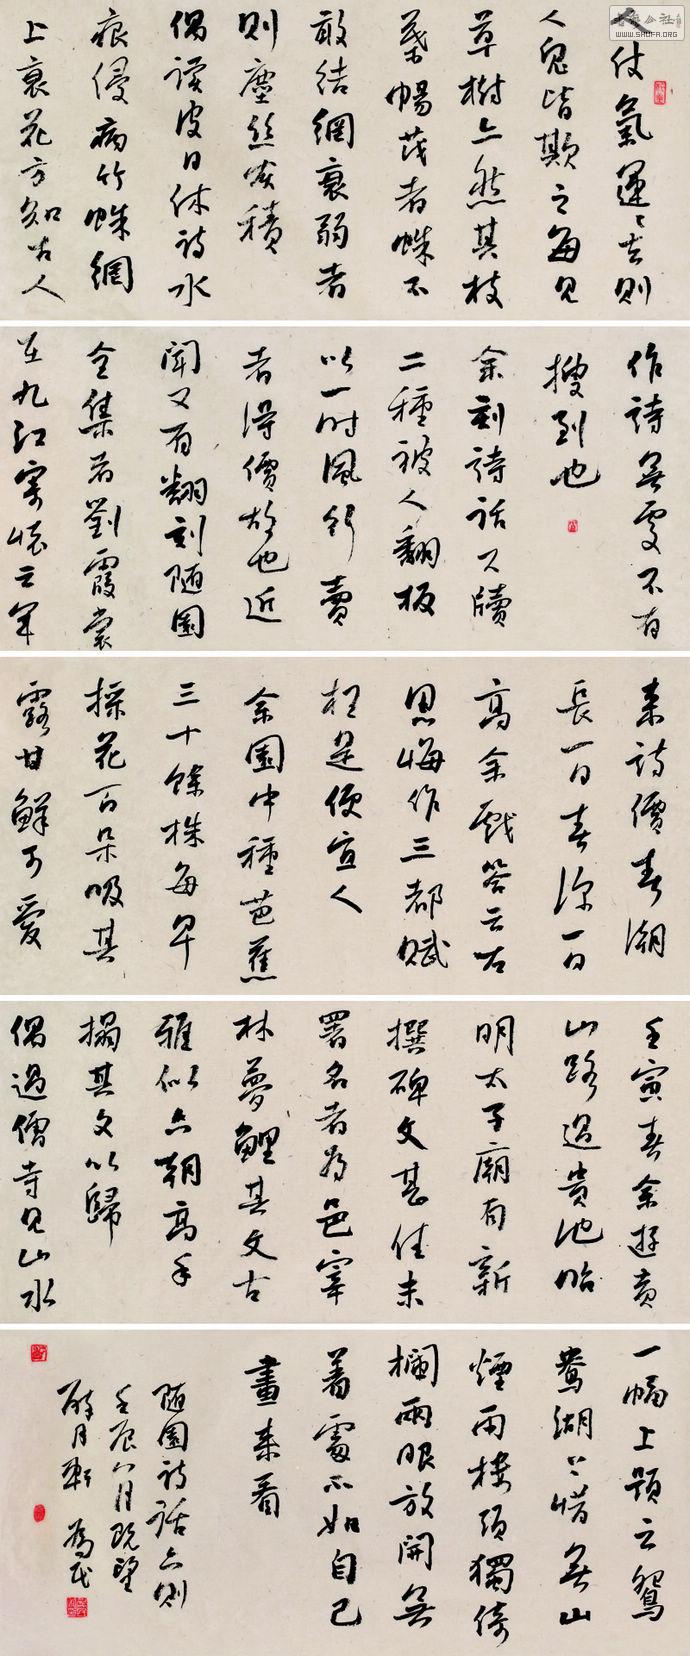 人仗氣運運去則
人鬼皆欺之每見
草樹亦然其枝
葉暢茂者蛛不
敢結網衰弱者
則塵絲灰積
偶讀皮日休詩水
痕侵病竹蛛網
上衰花方知古人
作詩無處不有
搜到也
余刻詩話尺牘
二種被人翻板
以一時風行賣
者得價故也近
聞又有翻刻隨園
全集者劉霞裳
在九江寄懷云年
來詩價春潮
長一日春深一日
高余戲答云左
思悔作三都賦
枉是便宜人
余園中種芭蕉
三十餘株每早
採花百朵吸其
露甘鮮可愛
壬寅春余遊黃
山路過貴池昭
明太子廟有新
撰碑文甚佳末
署名者為邑宰
林夢鯉其文古
雅似六朝高手
搨其文以歸
偶過僧寺見山水
一幅上題云鴛
鴦湖上惜無山
煙雨樓頭獨倚
欄兩眼放開無
著處不如自己
畫來看
隨園詩話六則
壬辰八月既望
醉月軒
WWW.SHUFA.ORG